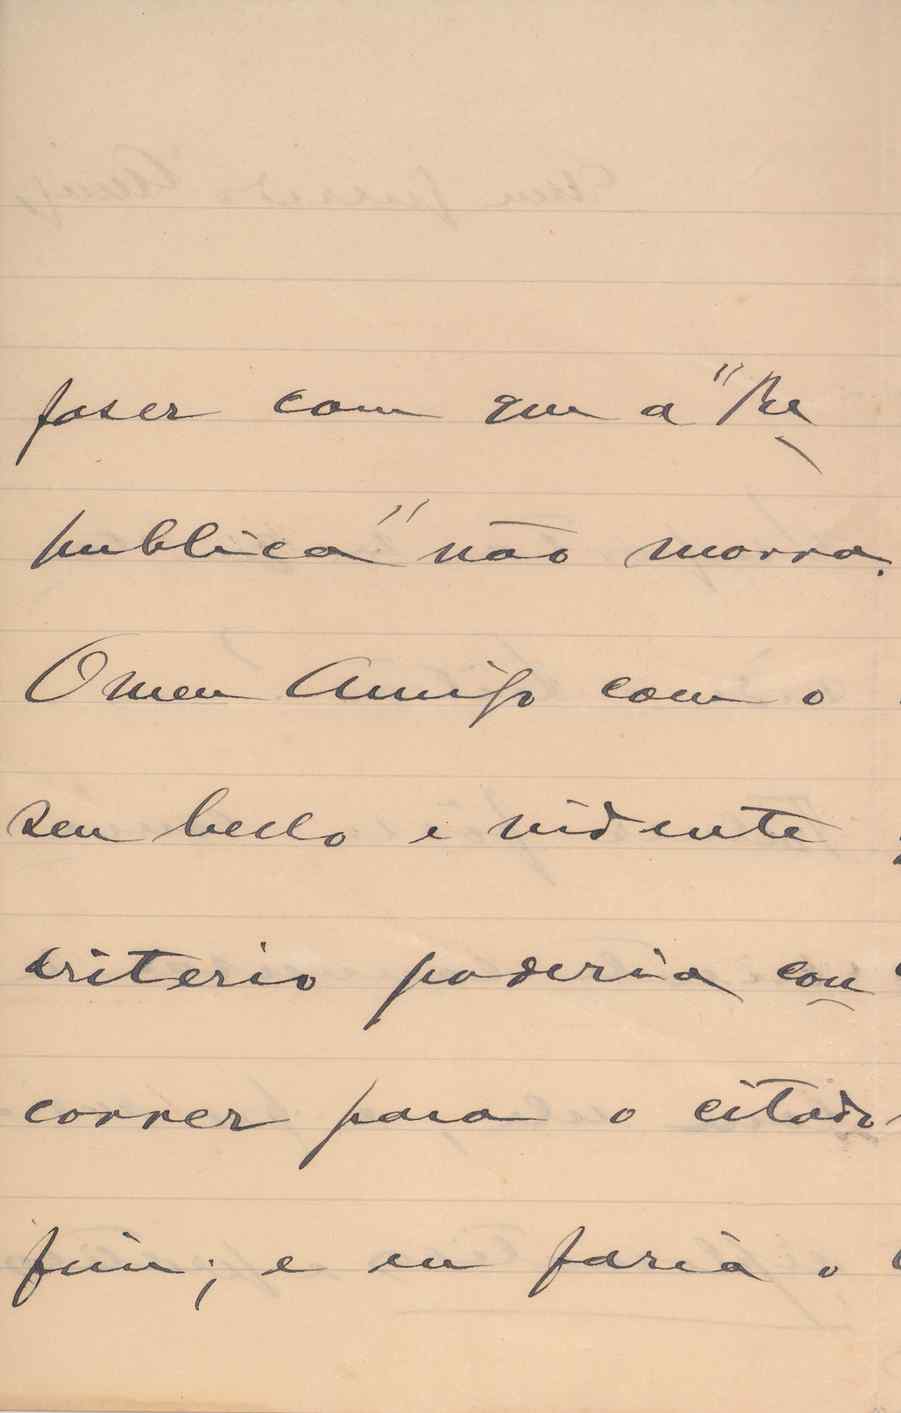 faser com que a "Re
publica" não morra.
O meu Amigo com o
seu bello e vidente
criterio poderia con
correr para o citado
fim; e eu faria o